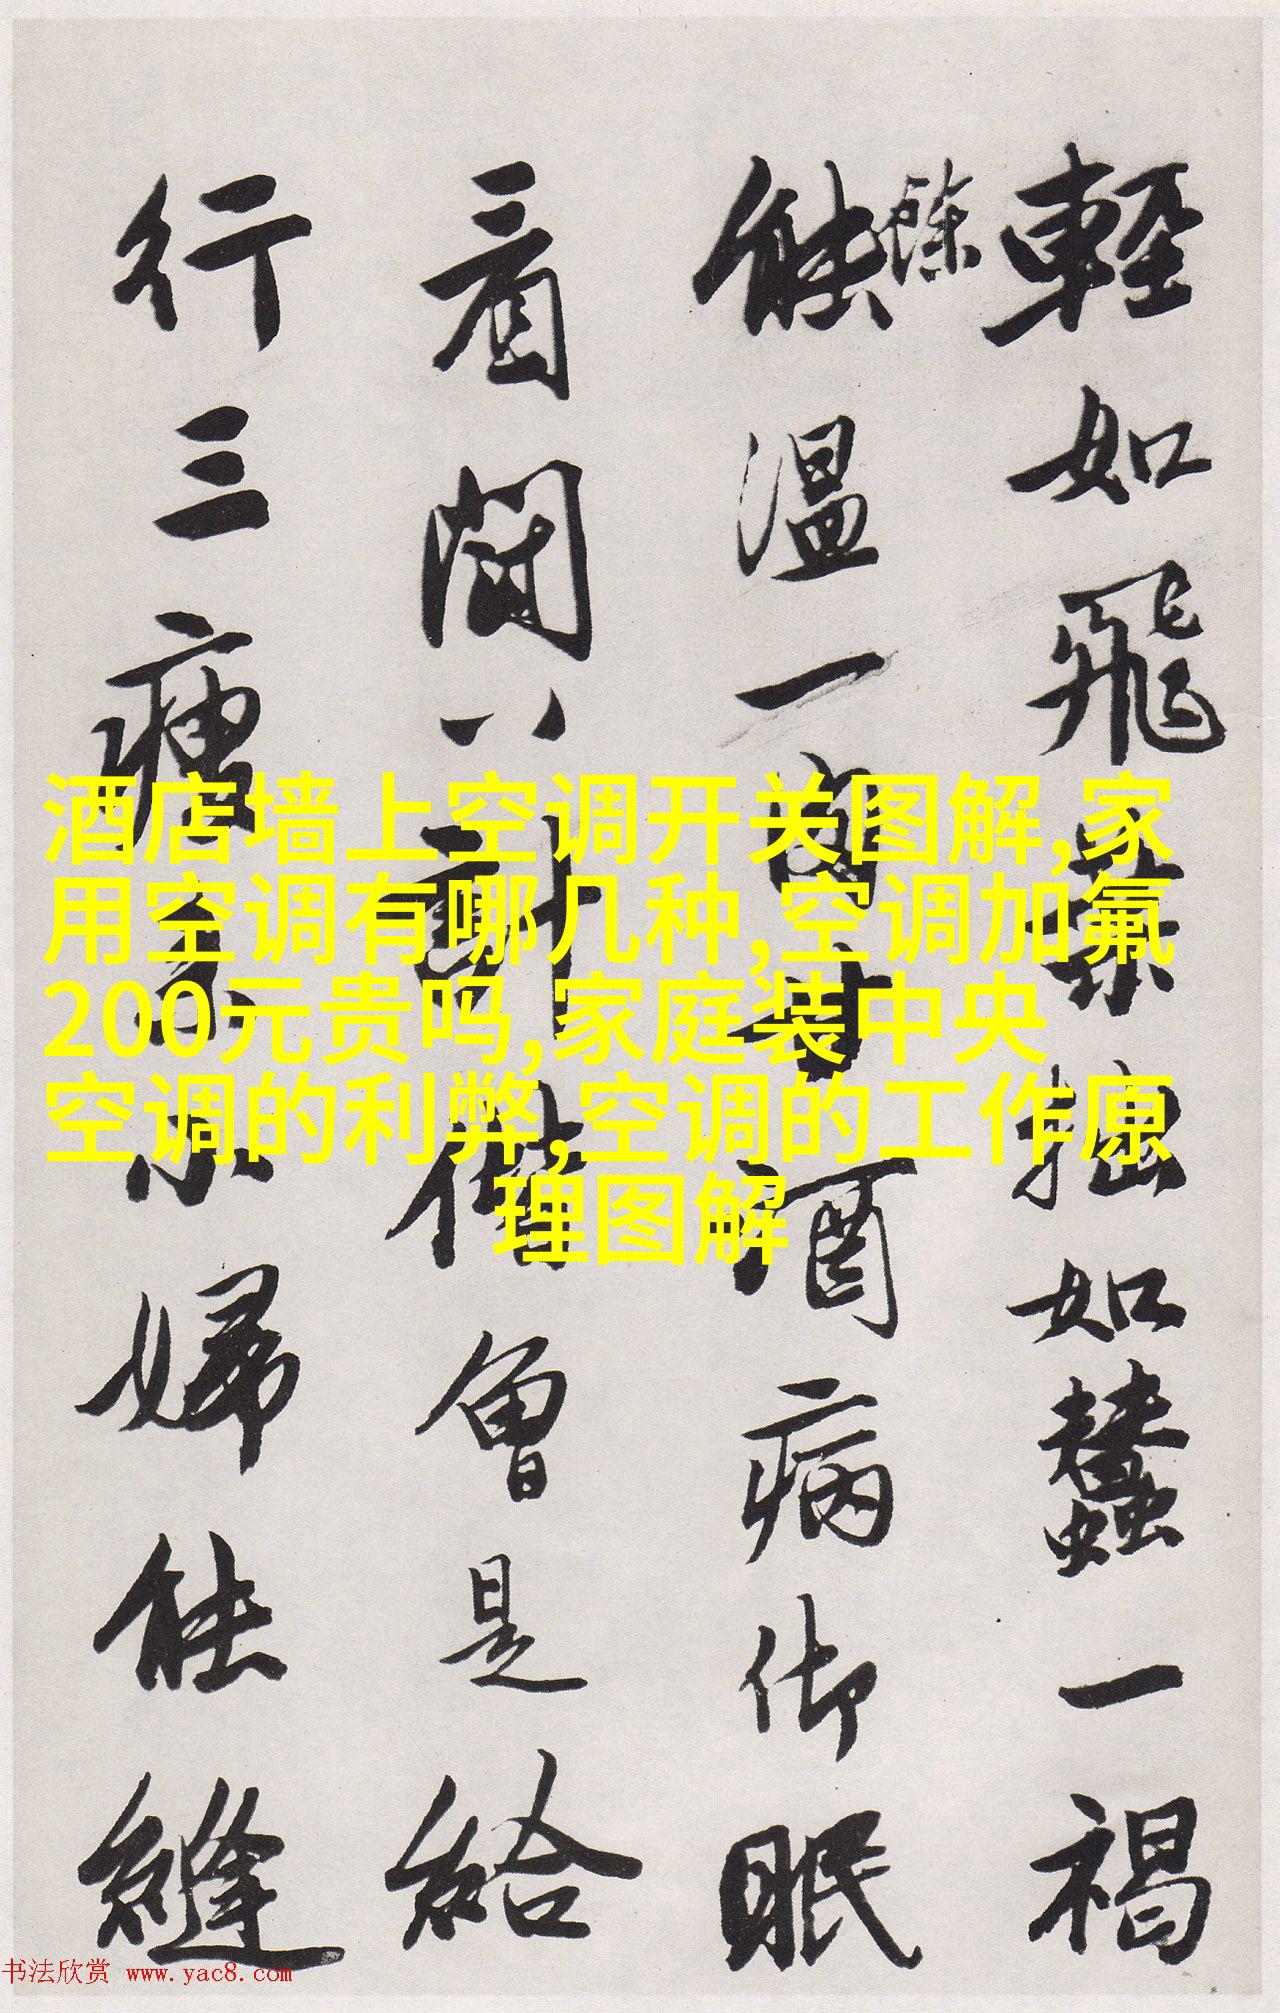 輕如飛葉拙如蠶一褐
餘
能溫一
酒病仰眠
看鬪
偕
會是給
行三
小婦能縫
酒店墙上空调开关图解,家
用空调有哪几种,空调加氟
200元贵吗,家庭装中央
空调的利弊,空调的工作原
理图解
书法欣赏 www.yac8.com